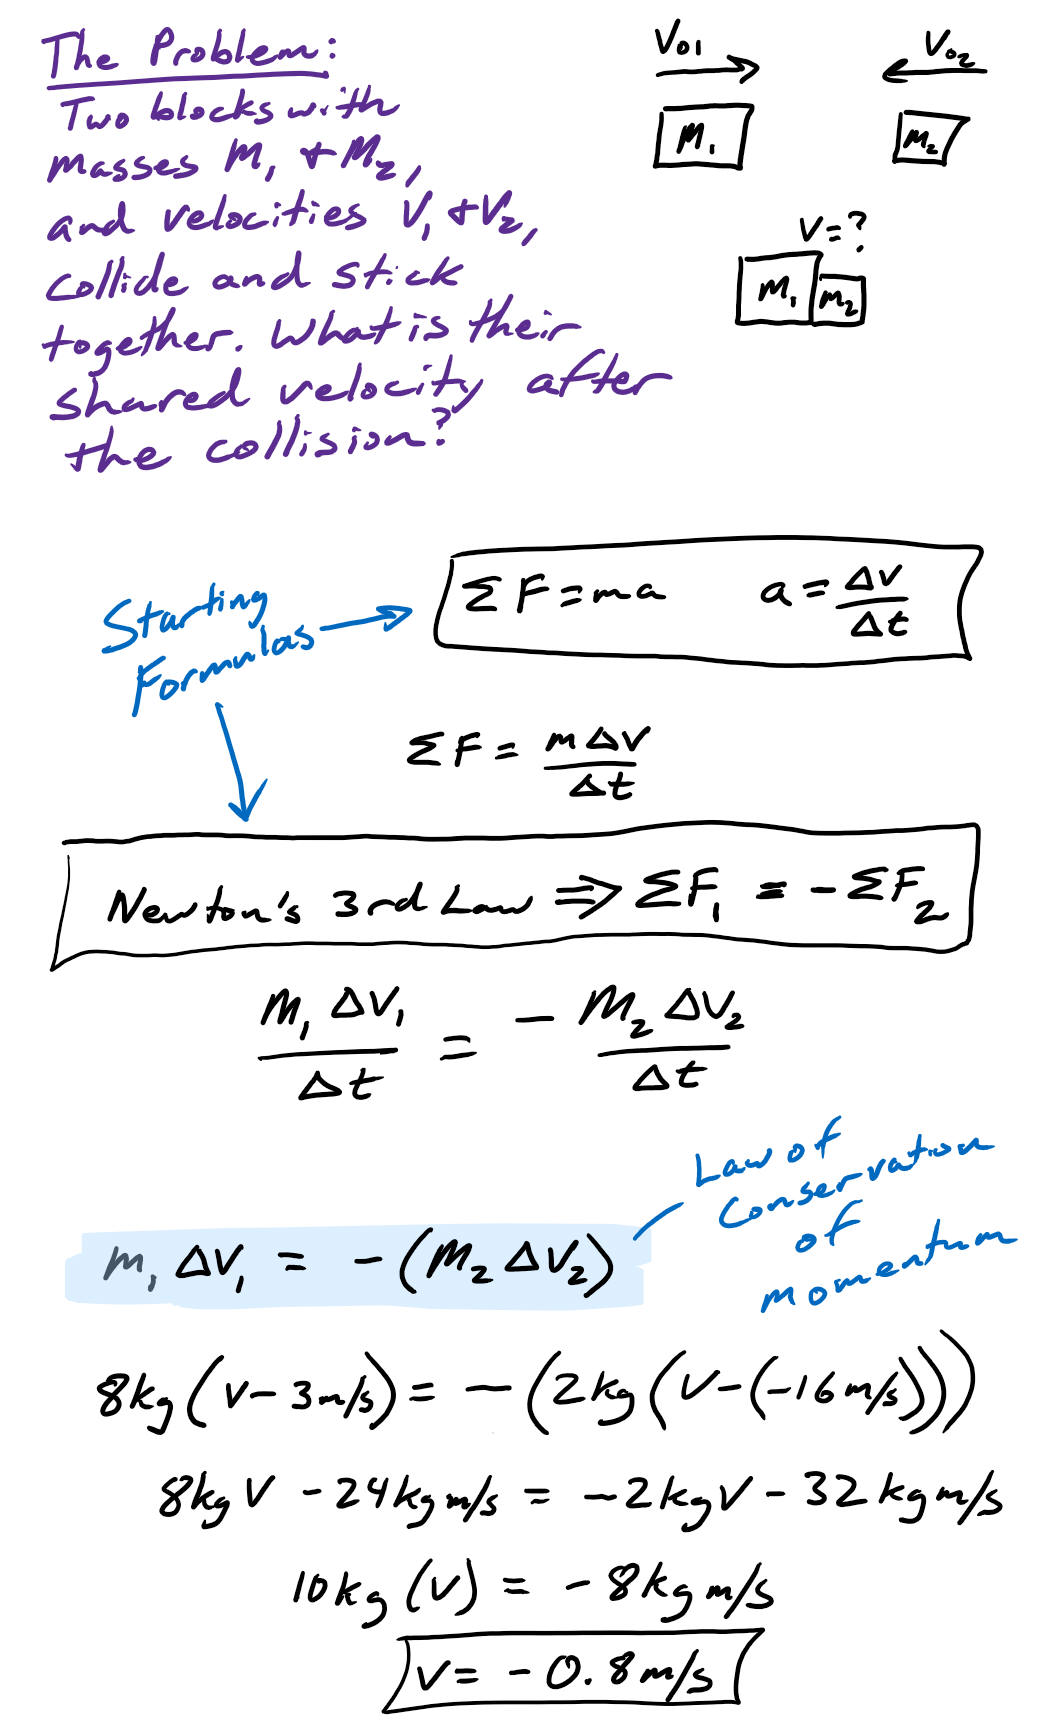 The Problem:
Two blocks with
masses M₁ + M₂,
and velocities V₁ + V₂,
collide and stick
together. What is their
shared velocity after
the collision?
V₀₁
V₀₂
M₁
m₂
V=?
M₁ m₂
Starting
Formulas
ΣF=ma a=Δv/Δt
ΣF = mΔv/Δt
Newton's 3rd Law ⇒ ΣF₁ = -ΣF₂
M₁ΔV₁/Δt = - M₂ΔV₂/Δt
Law of
conservation
of
momentum
m₁ ΔV₁ = -(M₂ ΔV₂)
8kg(v-3m/s) = -(2kg(v-(-16m/s)))
8kgV - 24kgm/s = -2kgV - 32kgm/s
10kg(v) = -8kgm/s
v= -0.8m/s